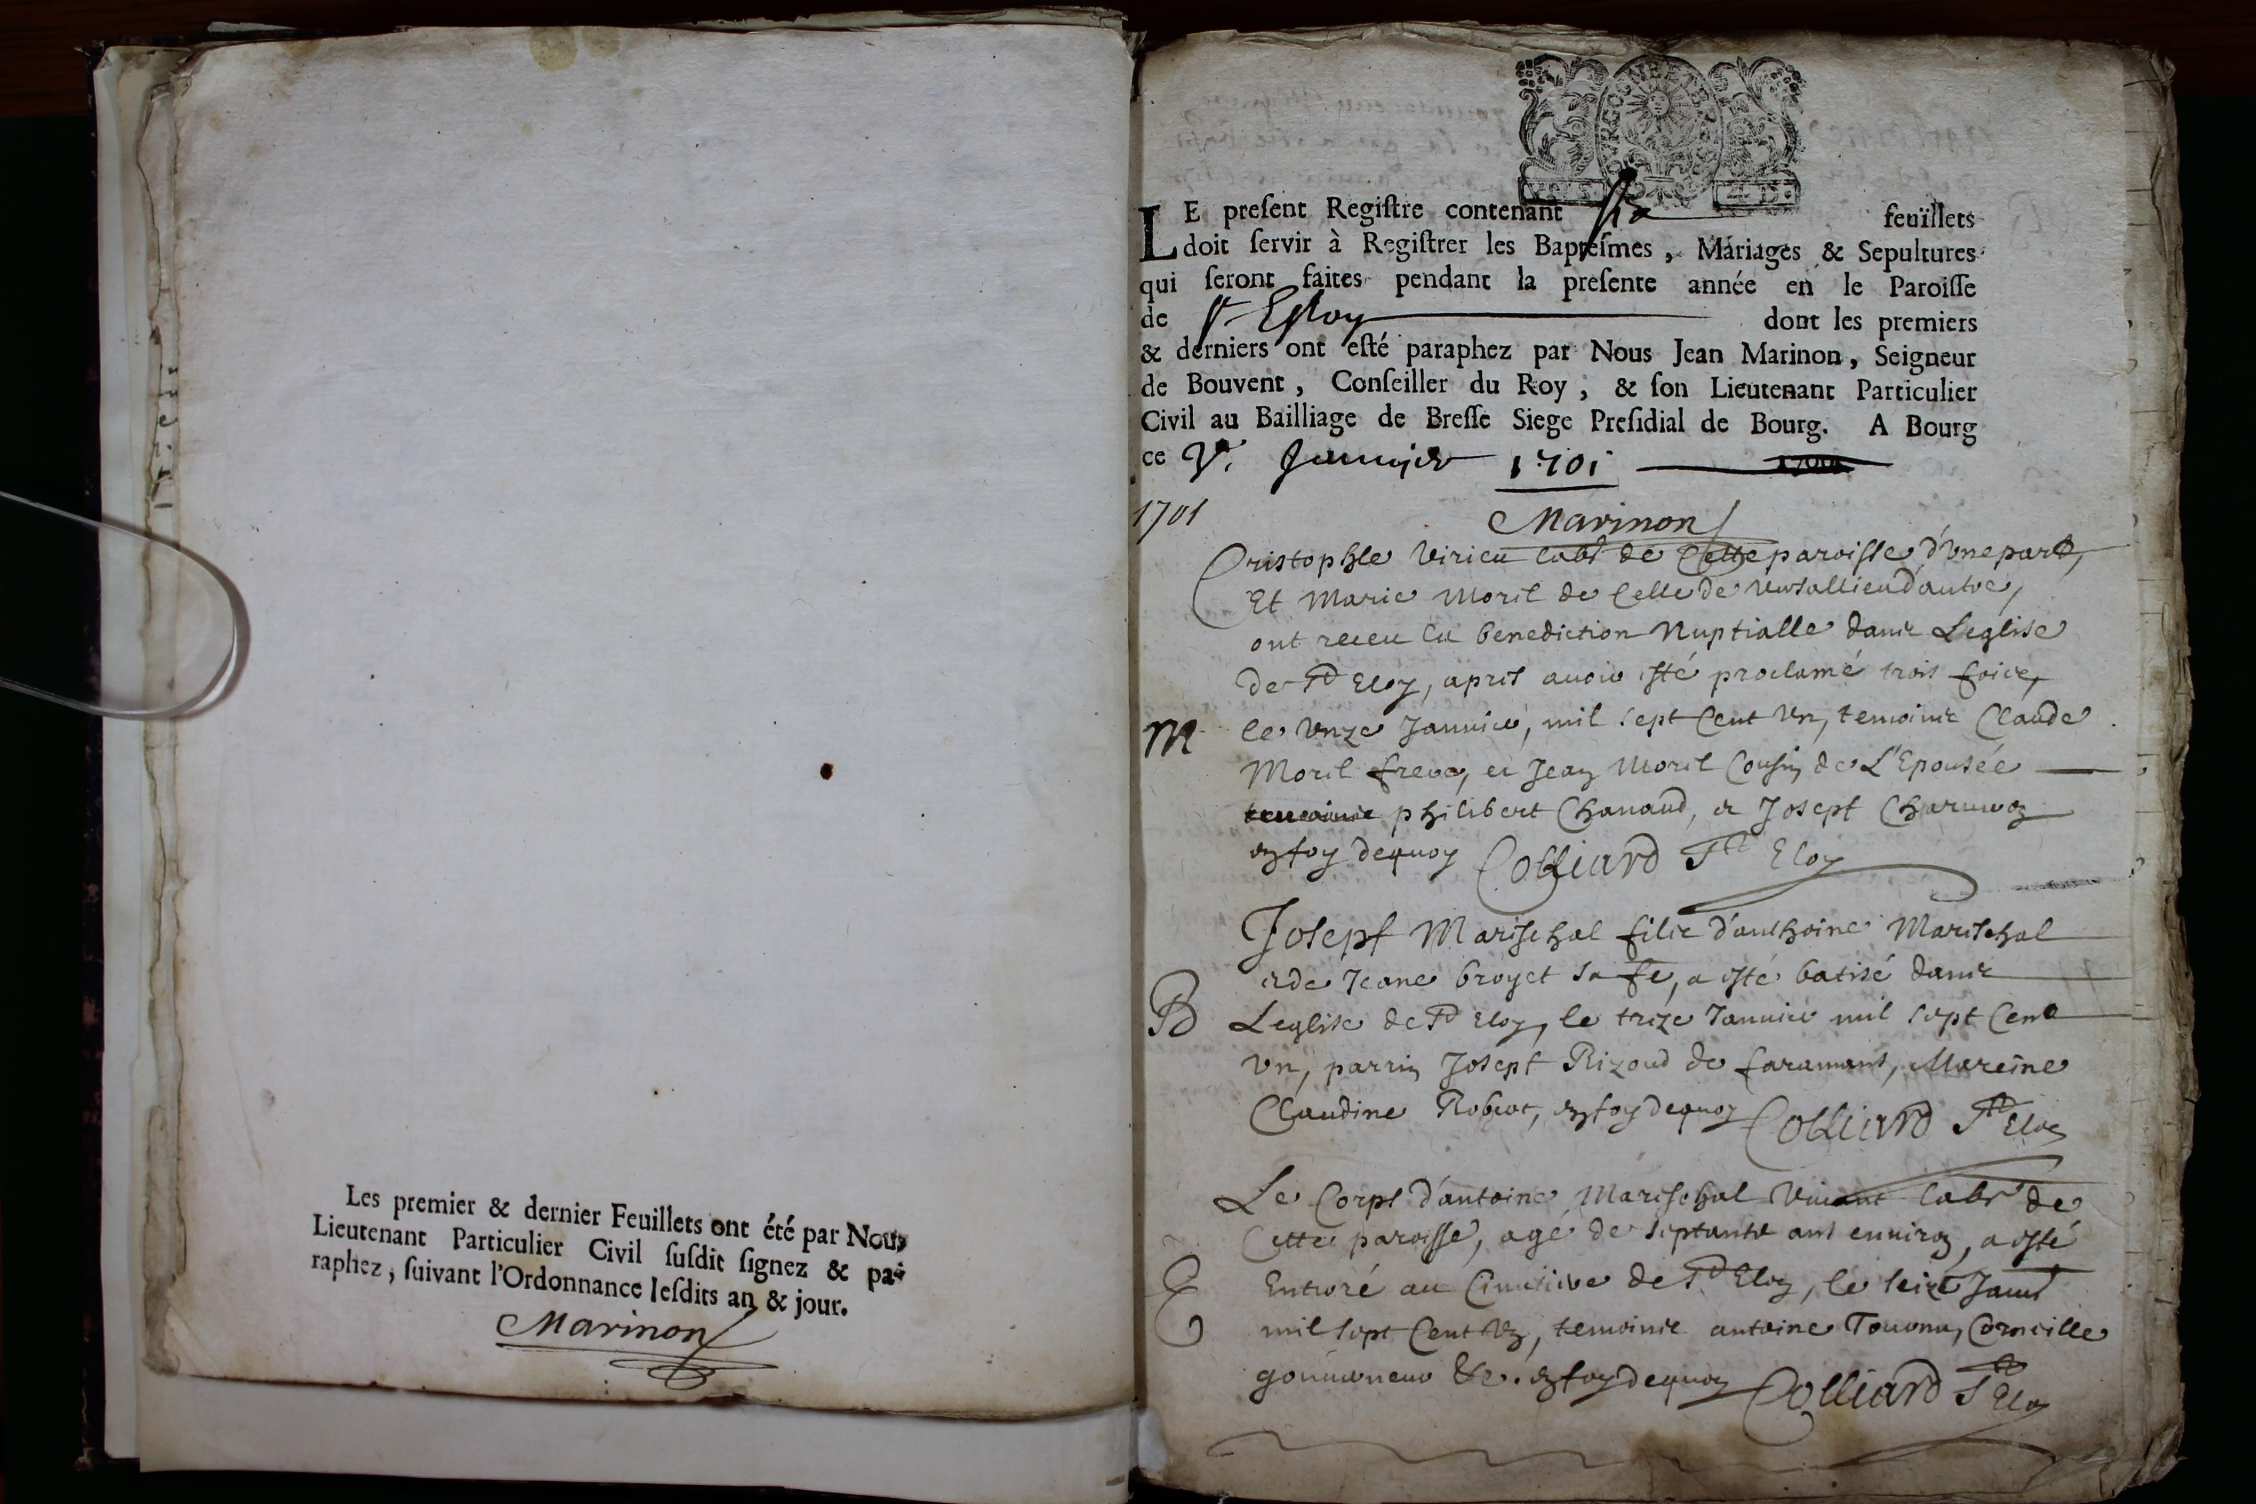 Les premier & dernier Feuillets ont été par Nous
Lieutenant Particulier Civil ſuſdit ſignez & pa-
raphez, ſuivant l'Ordonnance leſdits an & jour.
Marinon
LE preſent Regiſtre contenant six feuïllets
doit ſervir à Regiſtrer les Bapteſmes, Mariages & Sepultures
qui ſeront faites pendant la preſente année en le Paroiſſe
de St Esloy dont les premiers
& derniers ont eſté paraphez par Nous Jean Marinon, Seigneur
de Bouvent, Conſeiller du Roy, & ſon Lieutenant Particulier
Civil au Bailliage de Breſſe Siege Preſidial de Bourg. A Bourg
ce Janvier 1701 1700
1701
Marinon
Cristophle Virieu labr de Cette paroisse d'vne part,
Et Marie Moril de Celle de Versallieu d'autre,
ont receu la benediction Nuptialle danz Leglise
de St Eloy, apres auoir esté proclamé trois foiz,
M le vnze Januier, mil sept Cent vn, temoinz Claude
Moril frere, et Jean Moril Cousin de L'Epousée
temoinz philibert Chanaud, et Joseph
en foy dequoy Colliard St Eloy
Joseph Marischal filz d'anthoine Marischal
et de Jeane broyet sa fe, a esté batisé danz
B Leglise de St Eloy, le trize Januier mil sept Cent
vn, parrin Joseph Rizoud de faramans, Mareine
Claudine Robert, en foy dequoy Colliard St Eloy
Le Corps d'antoine Marischal viuant labr de
Cette paroisse, agé de septante ans enuiron, a esté
E Enterré au Cimetiere de St Eloy, le seize Janr
mil sept Cent vn, temoinz antoine Corneille
gouuerneur &c. en foy dequoy Colliard St Eloy